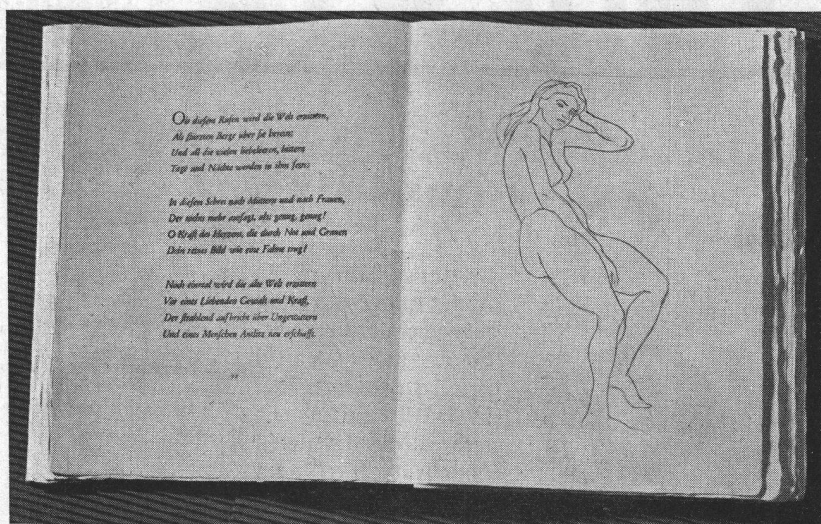 Ob dieſem Rufen wird die Welt erzittern,
Als ſtürzten Berge über ſie herein;
Und all die vielen liebeleeren, bittern
Tage und Nächte werden in ihm ſein:
In dieſem Schrei nach Müttern und nach Frauen,
Der nichts mehr anſagt, als: genug, genug!
O Kraft des Herzens, die durch Not und Grauen
Dein reines Bild wie eine Fahne trug!
Noch einmal wird die alte Welt erzittern
Vor eines Liebenden Gewalt und Kraft,
Der ſtrahlend aufbricht über Ungewittern
Und eines Menſchen Antlitz neu erſchafft.